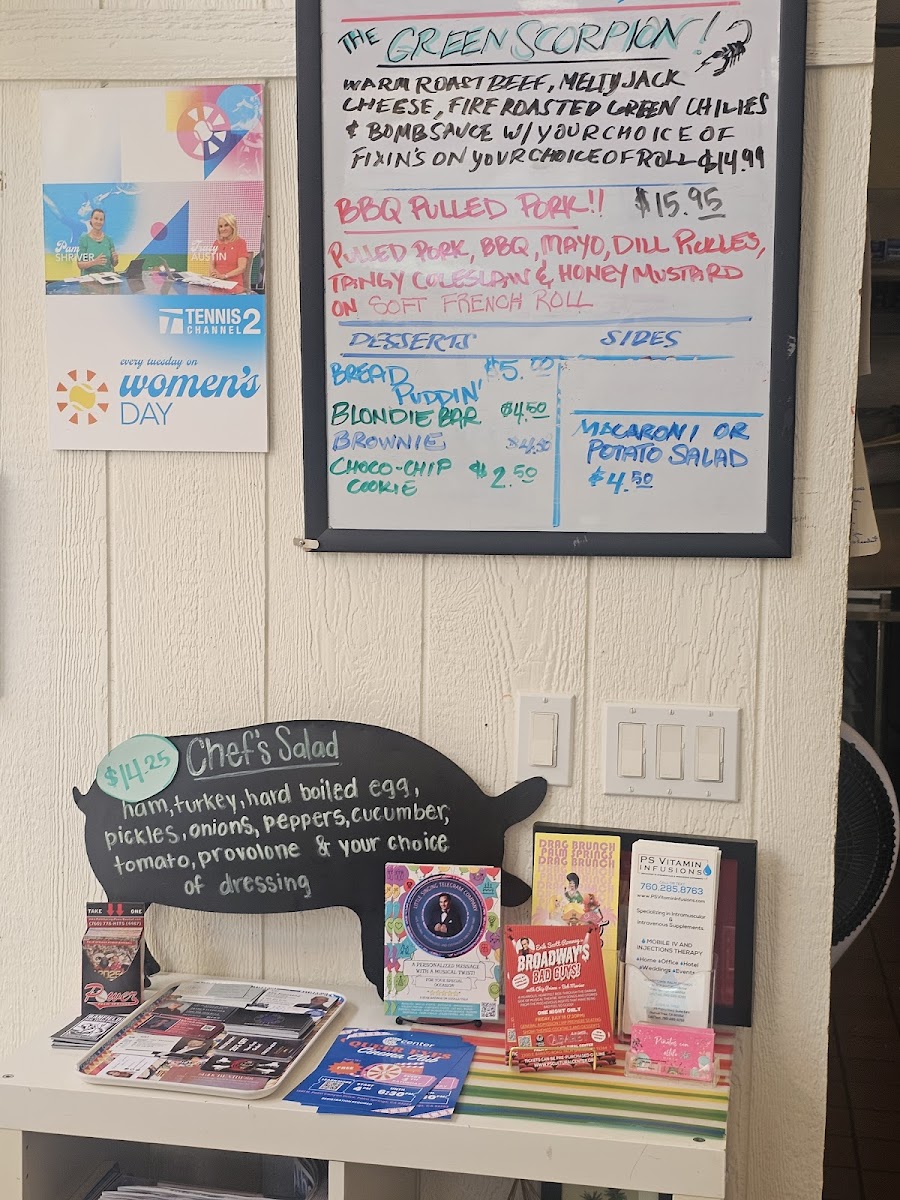 THE GREEN SCORPION!
WARM ROAST BEEF, MELTY JACK
CHEESE, FIRE ROASTED GREEN CHILIES
& BOMB SAUCE W/ YOUR CHOICE OF
FIXIN'S ON YOUR CHOICE OF ROLL $14.99
BBQ PULLED PORK!! $15.95
PULLED PORK, BBQ, MAYO, DILL PICKLES,
TANGY COLESLAW & HONEY MUSTARD
ON SOFT FRENCH ROLL
DESSERTS
BREAD PUDDIN' $5.00
BLONDIE BAR $4.50
BROWNIE $4.50
CHOCO-CHIP COOKIE $2.50
SIDES
MACARONI OR
POTATO SALAD
$4.50
Pam
SHRIVER
Tracy
AUSTIN
TENNIS
CHANNEL 2
every tuesday on
women's
DAY
$14.25
Chef's Salad
ham, turkey, hard boiled egg,
pickles, onions, peppers, cucumber,
tomato, provolone & your choice
of dressing
TAKE ONE
Power
A PERSONALIZED MESSAGE
WITH A MUSICAL TWIST!
DRAG BRUNCH
PALM SPRINGS
DRAG BRUNCH
BROADWAY'S
BAD GUYS!
ONE NIGHT ONLY
PS VITAMIN
INFUSIONS
760.285.8763
PSVitaminInfusions.com
Specializing in Intramuscular
&
Intravenous Supplements.
MOBILE IV AND
INJECTIONS THERAPY
#Home #Office #Hotel
#Weddings #Events
Center